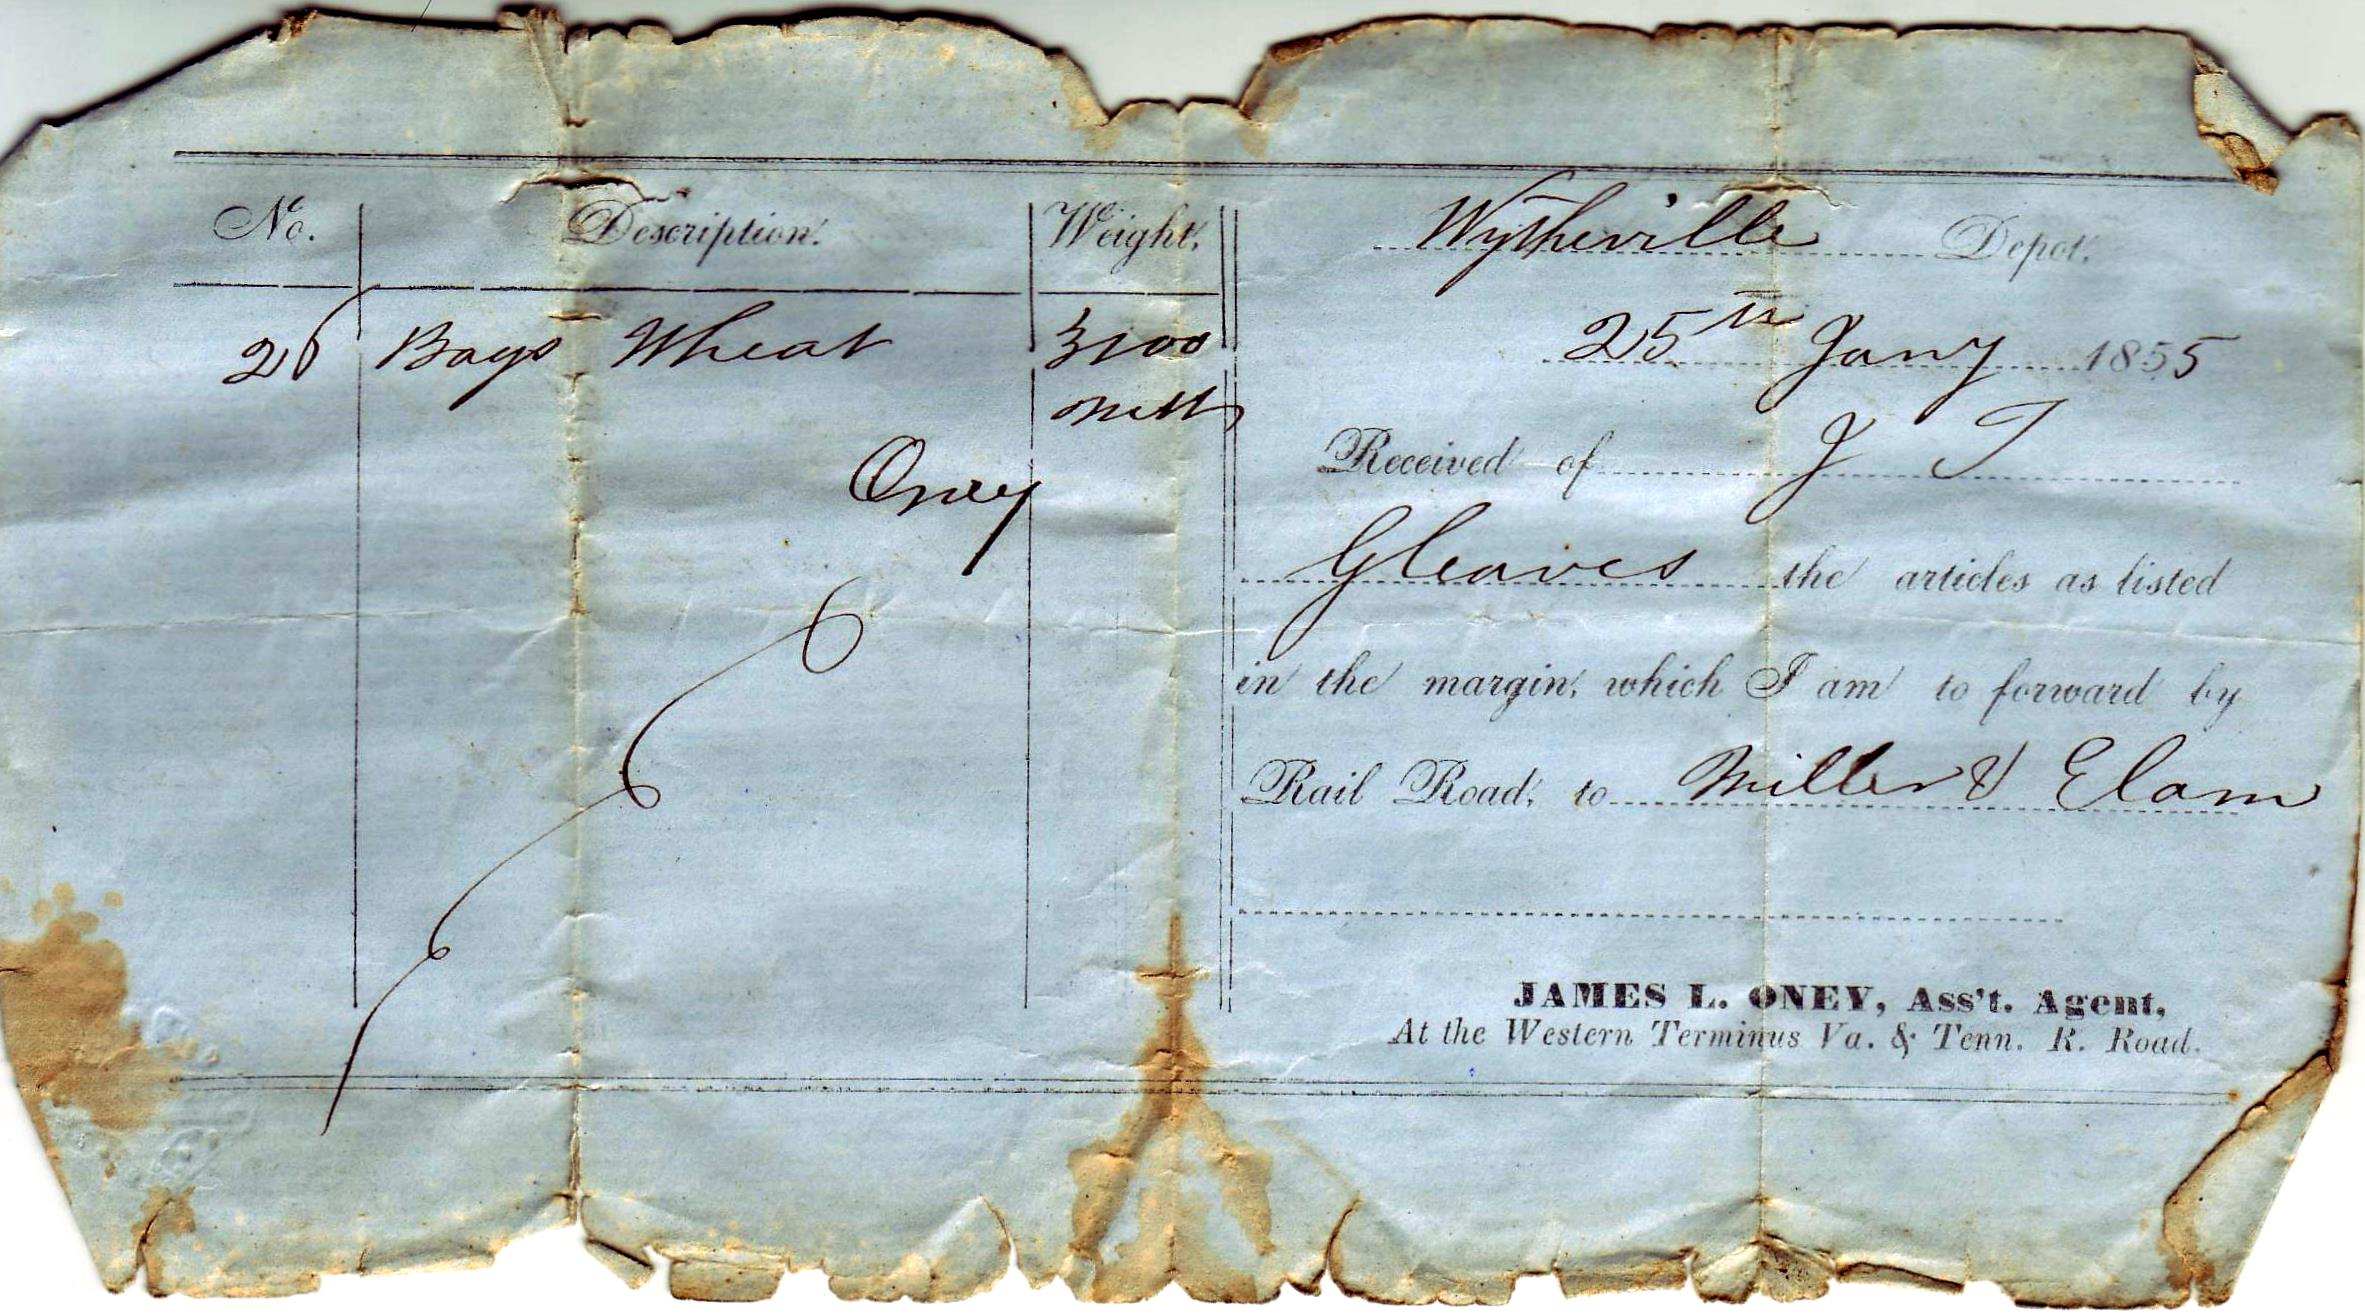 No. Description. Weight.
26 Bags Wheat 3100
nett
Oney
Wytheville Depot.
25th Jany 1855
Received of J T
Gleaves the articles as listed
in the margin, which I am to forward by
Rail Road, to Miller & Elam
JAMES L. ONEY, Ass't. Agent,
At the Western Terminus Va. & Tenn. R. Road.